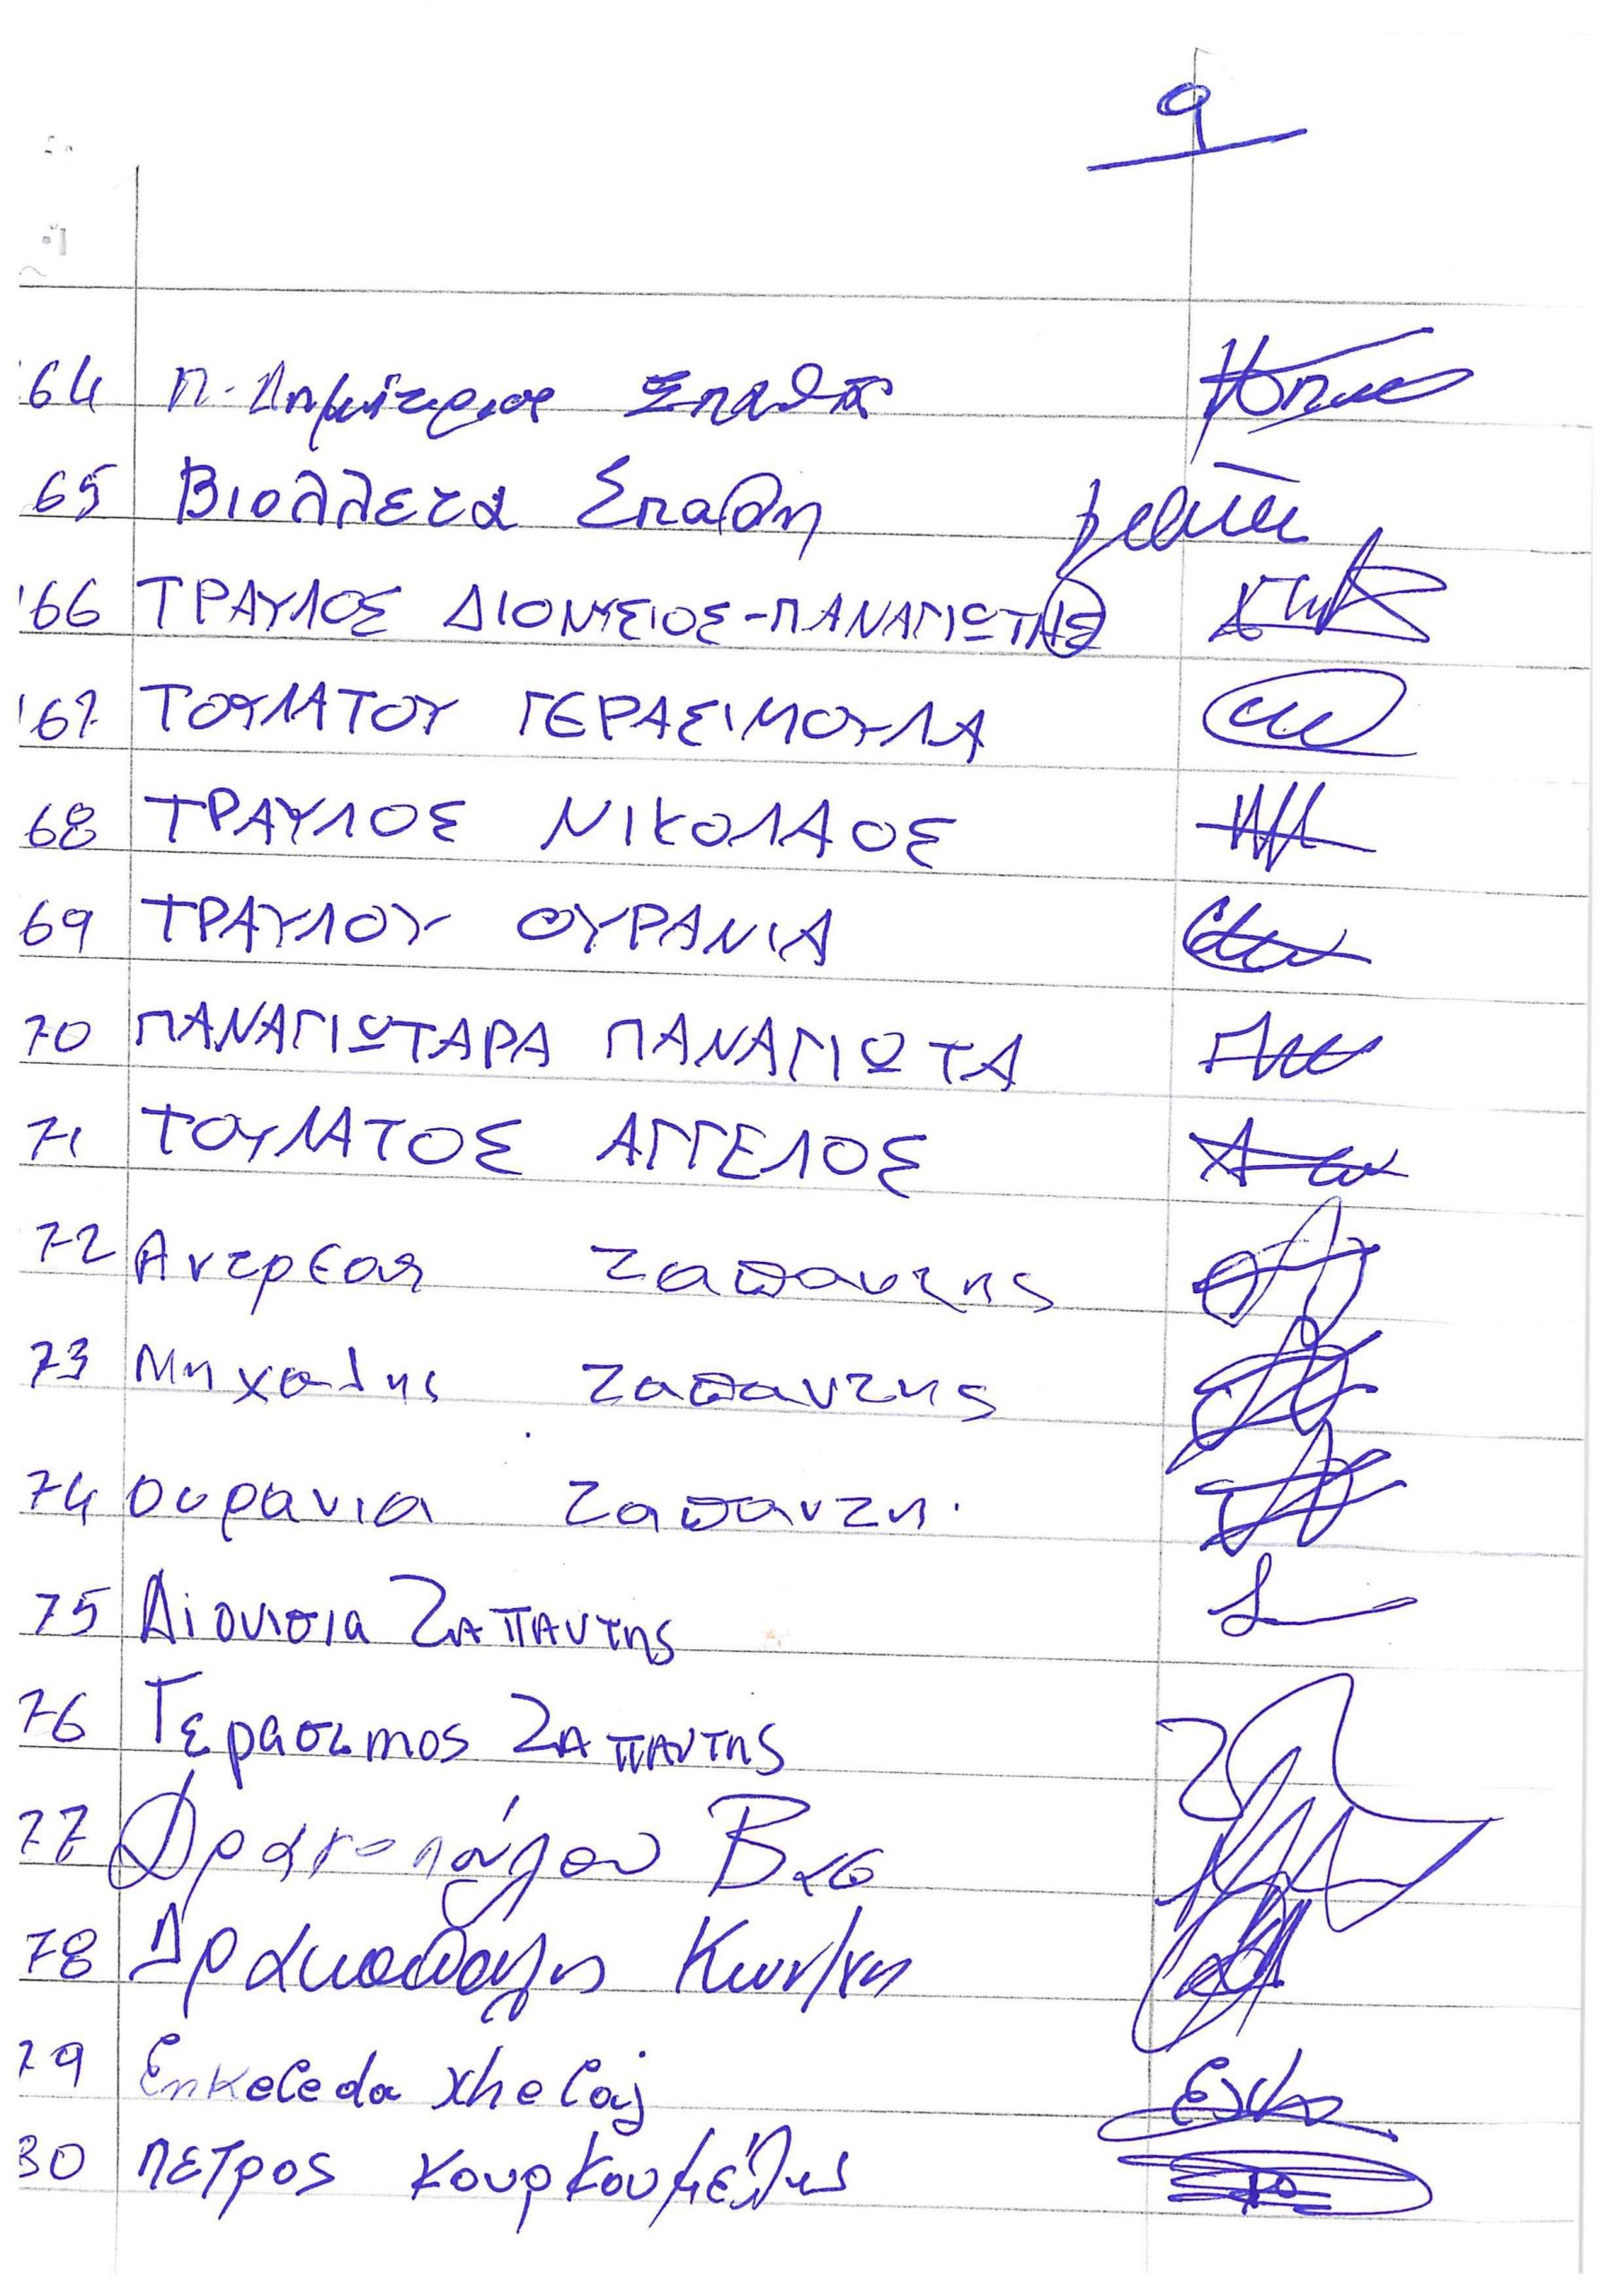 9
64 Π. Δημήτριος Σπαθής
65 Βιολλετα Σπαθη
66 ΤΡΑΥΛΟΣ ΔΙΟΝΥΣΙΟΣ-ΠΑΝΑΓΙΩΤΗΣ
67 ΤΟΥΛΑΤΟΥ ΓΕΡΑΣΙΜΟΥΛΑ
68 ΤΡΑΥΛΟΣ ΝΙΚΟΛΑΟΣ
69 ΤΡΑΥΛΟΥ ΟΥΡΑΝΙΑ
70 ΠΑΝΑΓΙΩΤΑΡΑ ΠΑΝΑΓΙΩΤΑ
71 ΤΟΥΛΑΤΟΣ ΑΓΓΕΛΟΣ
72 Αντρεας Ζαπαντης
73 Μηχαλης Ζαπαντης
74 Ουρανια Ζαπαντη.
75 Διονισια ΖΑΠΑΝΤης
76 Γερασιmos ΖΑΠΑΝΤης
77 Δρακοπούλου Βας
78 Δρακοπουλης Κων/νη
79 Enkeleda Xhelaj
80 ΠΕΤρος Κουρκουμέλης